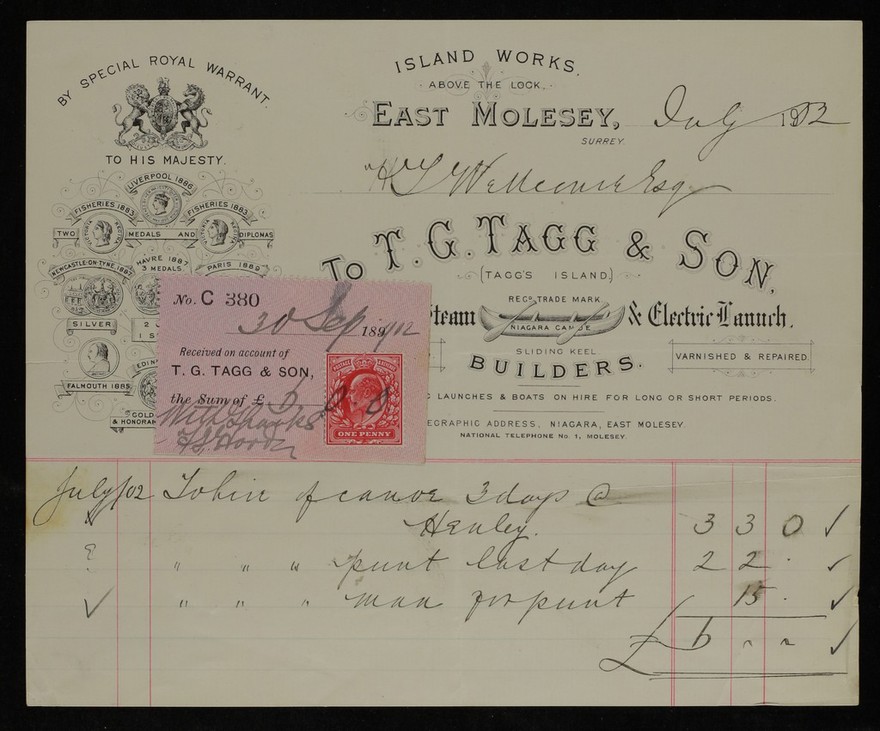 BY SPECIAL ROYAL WARRANT.
TO HIS MAJESTY.
LIVERPOOL 1886.
FISHERIES 1883
FISHERIES 1883.
TWO MEDALS AND DIPLOMAS
NEWCASTLE-ON-TYNE, 1887
HAVRE 1887
3 MEDALS.
PARIS 1889
SILVER
FALMOUTH 1885
GOLD
ISLAND WORKS.
ABOVE THE LOCK.
EAST MOLESEY, July 1902
SURREY
H S Wellcome Esq
To T. G. TAGG & SON.
(TAGG'S ISLAND.)
REGD TRADE MARK
Steam NIAGARA CANOE & Electric Launch.
SLIDING KEEL
BUILDERS.
VARNISHED & REPAIRED.
LAUNCHES & BOATS ON HIRE FOR LONG OR SHORT PERIODS.
EGRAPHIC ADDRESS, NIAGARA, EAST MOLESEY.
NATIONAL TELEPHONE No. 1, MOLESEY.
No. C 380
30 Sep 1902
Received on account of
T. G. TAGG & SON,
the Sum of £ 6 . 0 . 0
With Thanks
POSTAGE REVENUE
ONE PENNY
July/02 To hire of canoe 3 days @
Henley. 3 3 0 ✓
" " " punt last day 2 2 . ✓
✓ " " " man for punt 15 . ✓
£ 6 " " ✓